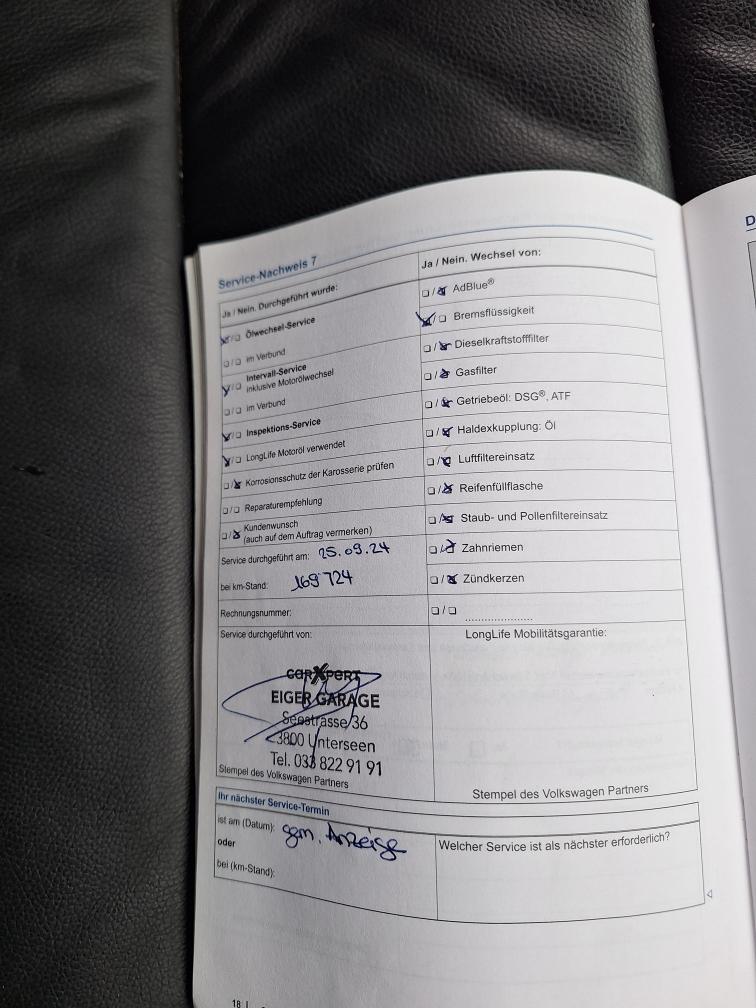 Service-Nachweis 7
Ja / Nein. Durchgeführt wurde:
Ölwechsel-Service
im Verbund
Intervall-Service
inklusive Motorölwechsel
im Verbund
Inspektions-Service
LongLife Motoröl verwendet
Korrosionsschutz der Karosserie prüfen
Reparaturempfehlung
Kundenwunsch
(auch auf dem Auftrag vermerken)
Service durchgeführt am: 25.09.24
bei km-Stand: 169 724
Rechnungsnummer:
Service durchgeführt von:
carXpert
EIGER GARAGE
Seestrasse 36
3800 Unterseen
Tel. 033 822 91 91
Stempel des Volkswagen Partners
Ja / Nein. Wechsel von:
AdBlue®
Bremsflüssigkeit
Dieselkraftstofffilter
Gasfilter
Getriebeöl: DSG®, ATF
Haldexkupplung: Öl
Luftfiltereinsatz
Reifenfüllflasche
Staub- und Pollenfiltereinsatz
Zahnriemen
Zündkerzen
LongLife Mobilitätsgarantie:
Stempel des Volkswagen Partners
Ihr nächster Service-Termin
ist am (Datum): gem. Anzeige
oder
bei (km-Stand):
Welcher Service ist als nächster erforderlich?
18
D